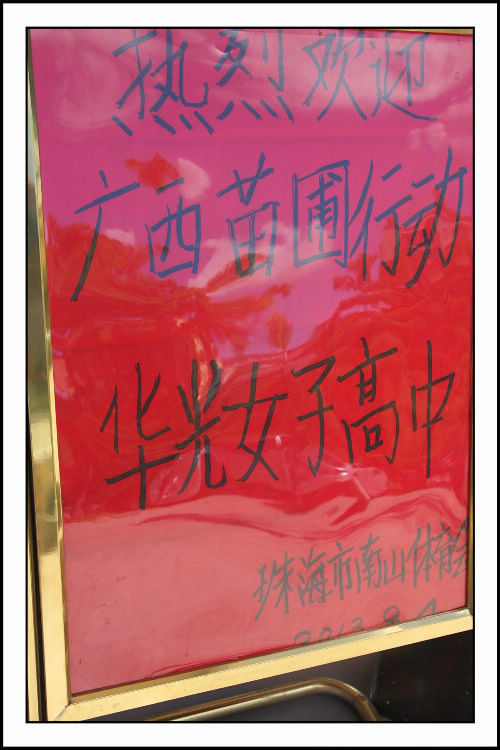 热烈欢迎
广西苗圃行动
华光女子高中
珠海市南山体育会
2013.9.